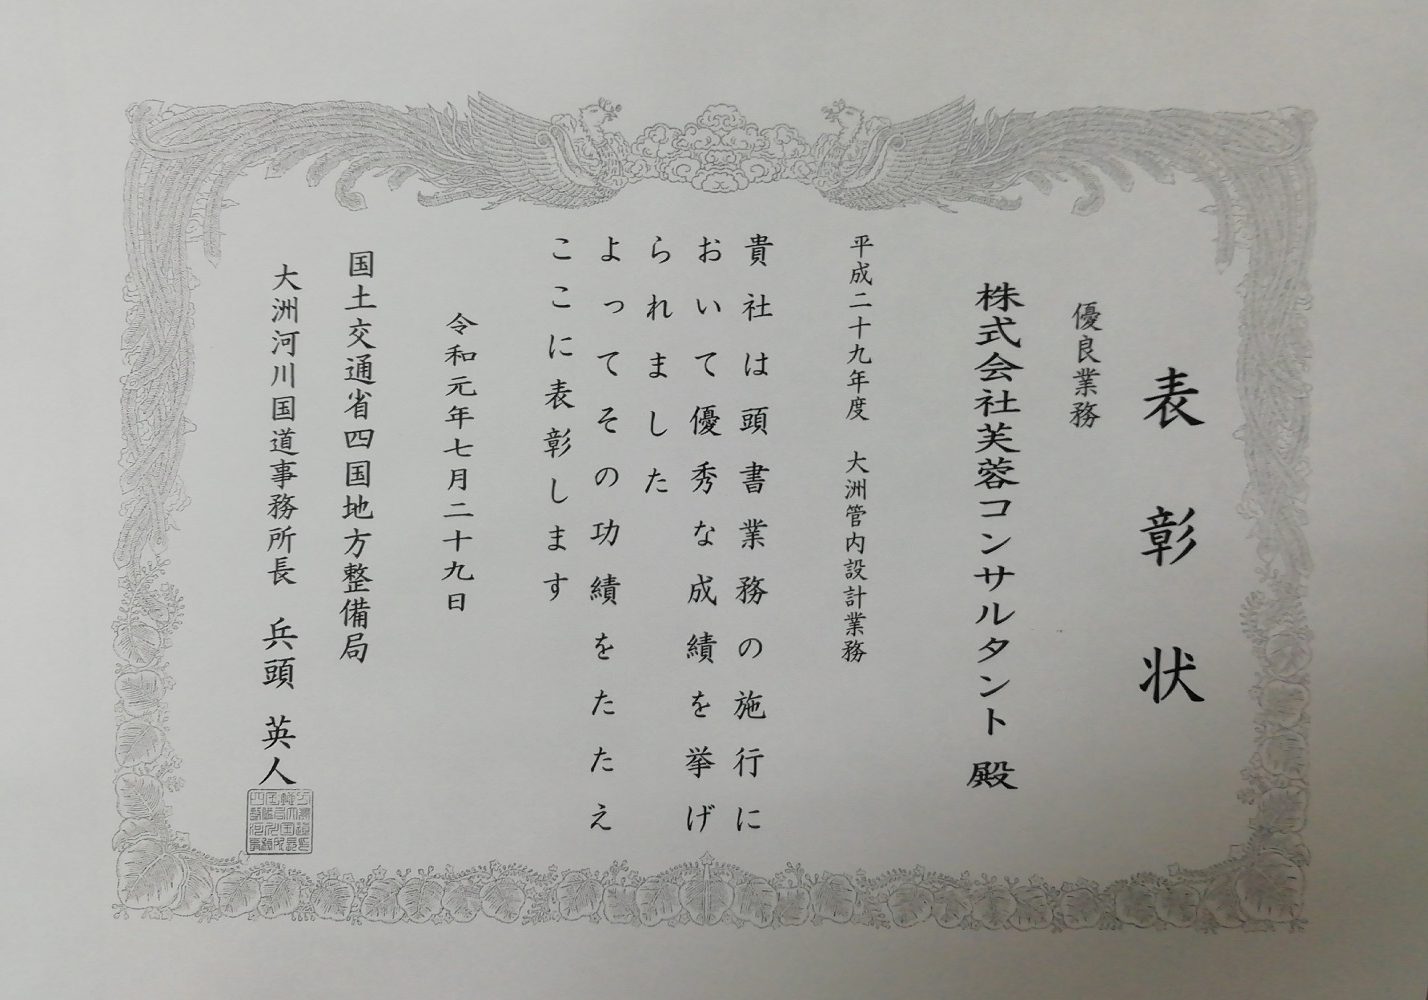 表彰状
優良業務
株式会社芙蓉コンサルタント 殿
平成二十九年度 大洲管内設計業務
貴社は頭書業務の施行に
おいて優秀な成績を挙げ
られました
よってその功績をたたえ
ここに表彰します
令和元年七月二十九日
国土交通省四国地方整備局
大洲河川国道事務所長 兵頭 英人